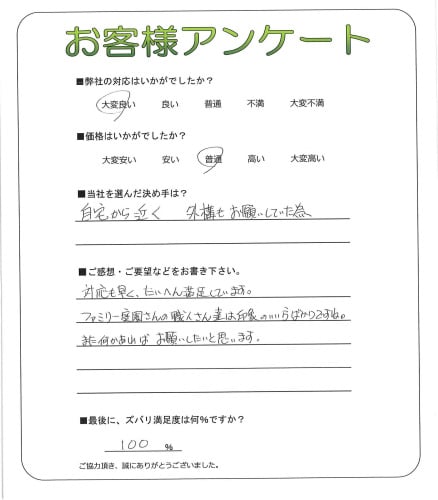 お客様アンケート
■弊社の対応はいかがでしたか？
大変良い　良い　普通　不満　大変不満
■価格はいかがでしたか？
大変安い　安い　普通　高い　大変高い
■当社を選んだ決め手は？
自宅から近く　外構もお願いしていた為、
■ご感想・ご要望などをお書き下さい。
対応も早く、たいへん満足しています。
ファミリー庭園さんの職人さん達は印象のいい方ばかりですね。
また何かあれば お願いしたいと思います。
■最後に、ズバリ満足度は何%ですか？
100 %
ご協力頂き、誠にありがとうございました。